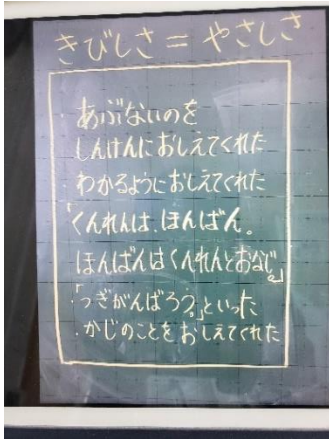 きびしさ＝やさしさ
・あぶないのを
しんけんにおしえてくれた
・わかるようにおしえてくれた
「くんれんは、ほんばん。
ほんばんはくんれんとおなじ。」
・「つぎがんばろう。」といった
・かじのことをおしえてくれた